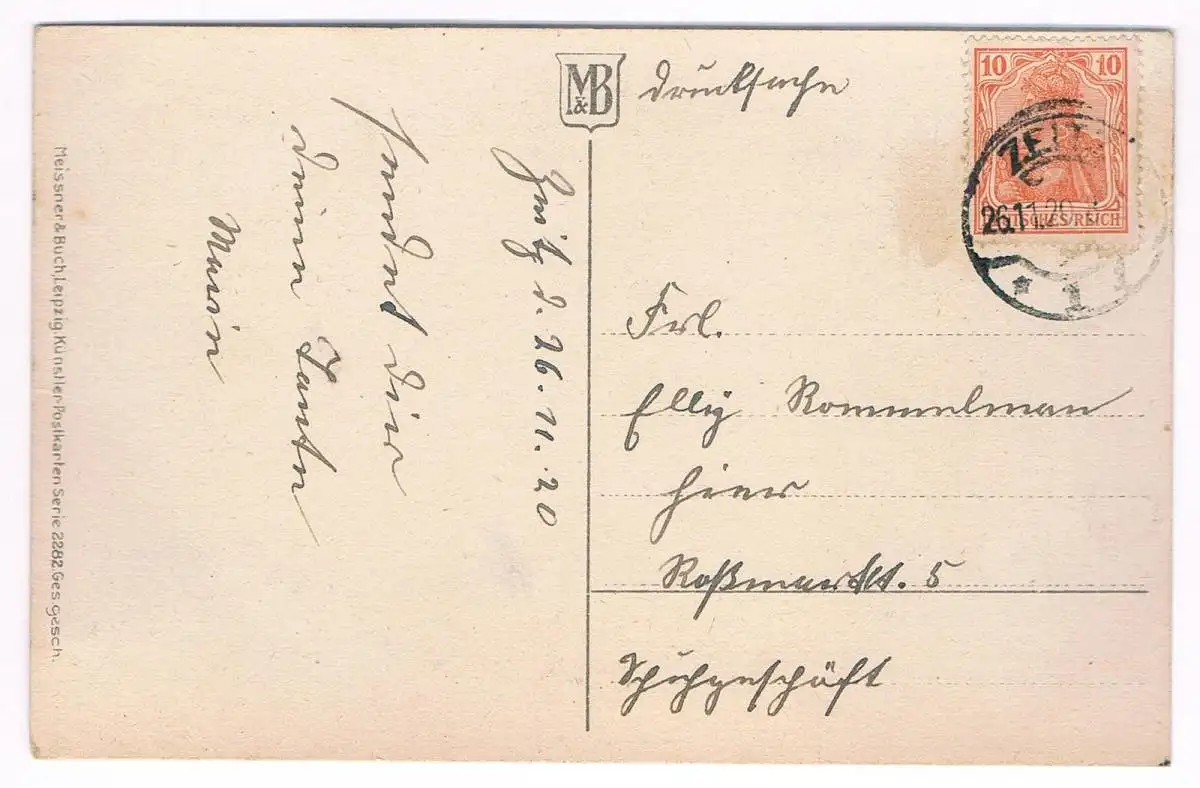 Meissner & Buch, Leipzig. Künstler-Postkarten Serie 2282. Ges. gesch.
Zeitz d. 26.11.20
sendet dir
deine Tante
M&B
Drucksache
10 10
ZEITZ
26.11.20
DEUTSCHES REICH
* 1
Frl.
Elly Rommelman
hier
Roßmarkt. 5
Schuhgeschäft